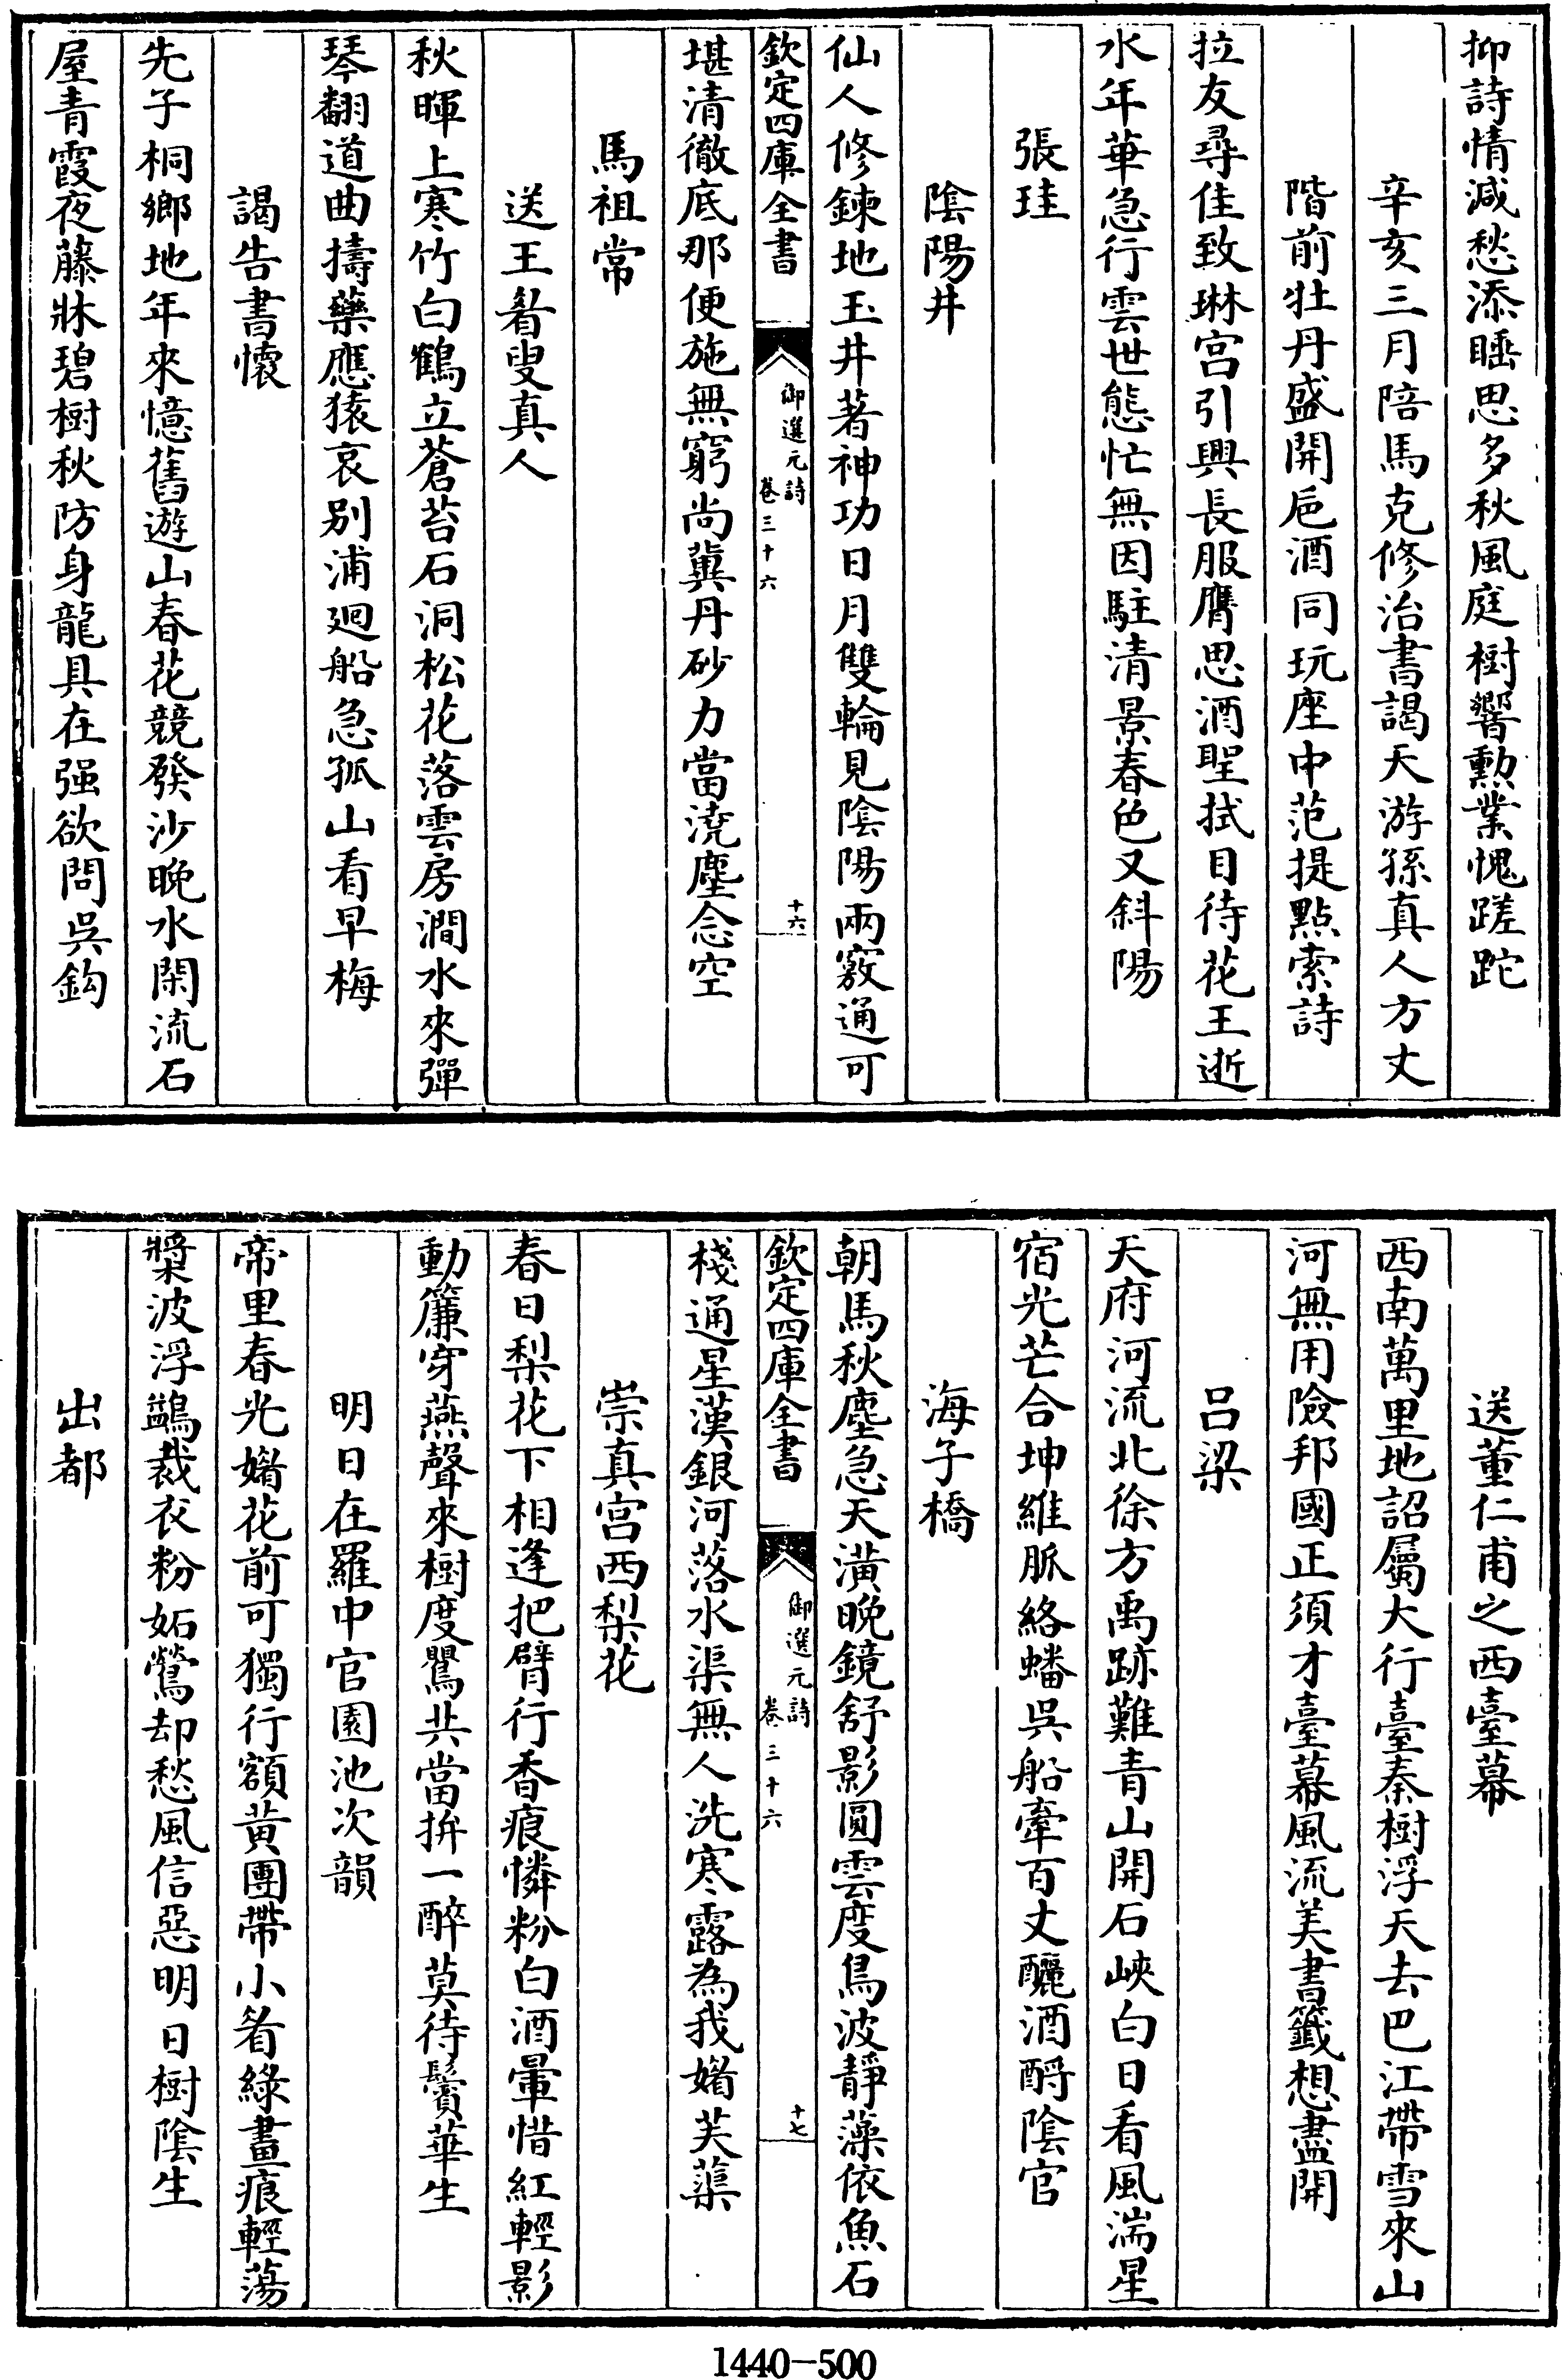 抑詩情減愁添睡思多秋風庭樹響勲業愧蹉跎
辛亥三月陪馬克修治書謁天游孫真人方丈
階前牡丹盛開巵酒同玩座中范提點索詩
拉友尋佳致琳宫引興長服膺思酒聖拭目待花王逝
水年華急行雲世態忙無因駐清景春色又斜陽
張珪
陰陽井
仙人修鍊地玉井著神功日月雙輪見陰陽兩竅通可
欽定四庫全書
御選元詩
卷三十六
十六
堪清徹底那便施無窮尚冀丹砂力當澆塵念空
馬祖常
送王眘叟真人
秋暉上寒竹白鶴立蒼苔石洞松花落雲房澗水來彈
琴翻道曲擣藥應猿哀别浦廻船急孤山看早梅
謁告書懷
先子桐鄉地年來憶舊遊山春花競發沙晩水閑流石
屋青霞夜藤牀碧樹秋防身龍具在强欲問吳鈎
送董仁甫之西臺幕
西南萬里地詔屬大行臺秦樹浮天去巴江帶雪來山
河無用險邦國正須才臺幕風流美書籤想盡開
吕梁
天府河流北徐方禹跡難青山開石峽白日看風湍星
宿光芒合坤維脈絡蟠吳船牽百丈釃酒酹陰官
海子橋
朝馬秋塵急天潢晩鏡舒影圓雲度鳥波靜藻依魚石
欽定四庫全書
御選元詩
卷三十六
十七
棧通星漢銀河落水渠無人洗寒露為我媚芙蕖
崇真宫西梨花
春日梨花下相逢把臂行香痕憐粉白酒暈惜紅輕影
動簾穿燕聲來樹度鸎共當拚一醉莫待鬢華生
明日在羅中官園池次韻
帝里春光媚花前可獨行額黄團帶小眉綠畫痕輕蕩
槳波浮鷁裁衣粉妬鶯却愁風信惡明日樹陰生
出都
1440—500